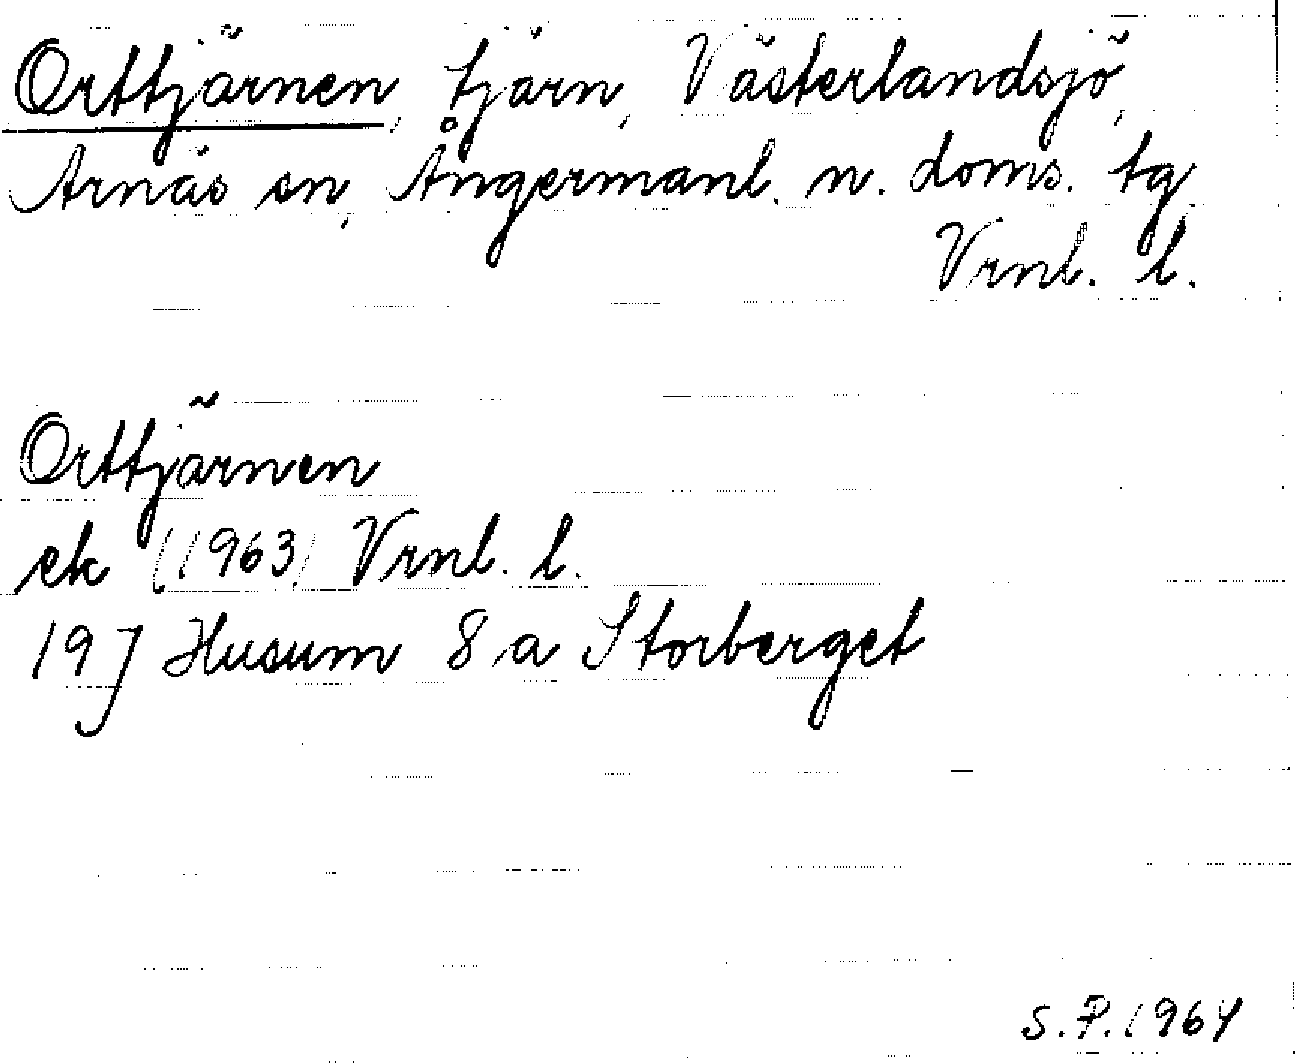 Orttjärnen, tjärn, Västerlandsjö,
Arnäs sn, Ångermanl. n. doms. tg
Vrnl. l.
Orttjärnen
ek (1963) Vrnl. l.
19J Husum 8 a Storberget
S.P. 1964